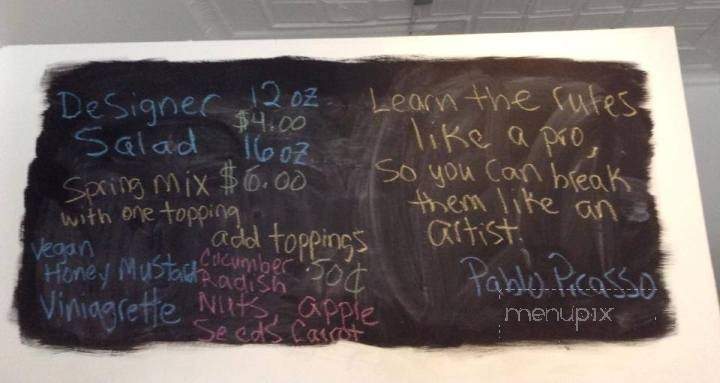 Designer 12 oz
$4.00
Salad 16 oz
Spring Mix $6.00
with one topping
add toppings
.50¢
Vegan
Honey Mustard
Viniagrette
Cucumber
Radish
Nuts, apple
Seeds Carrot
Learn the rules
like a pro,
So you can break
them like an
artist.
Pablo Picasso
menupix